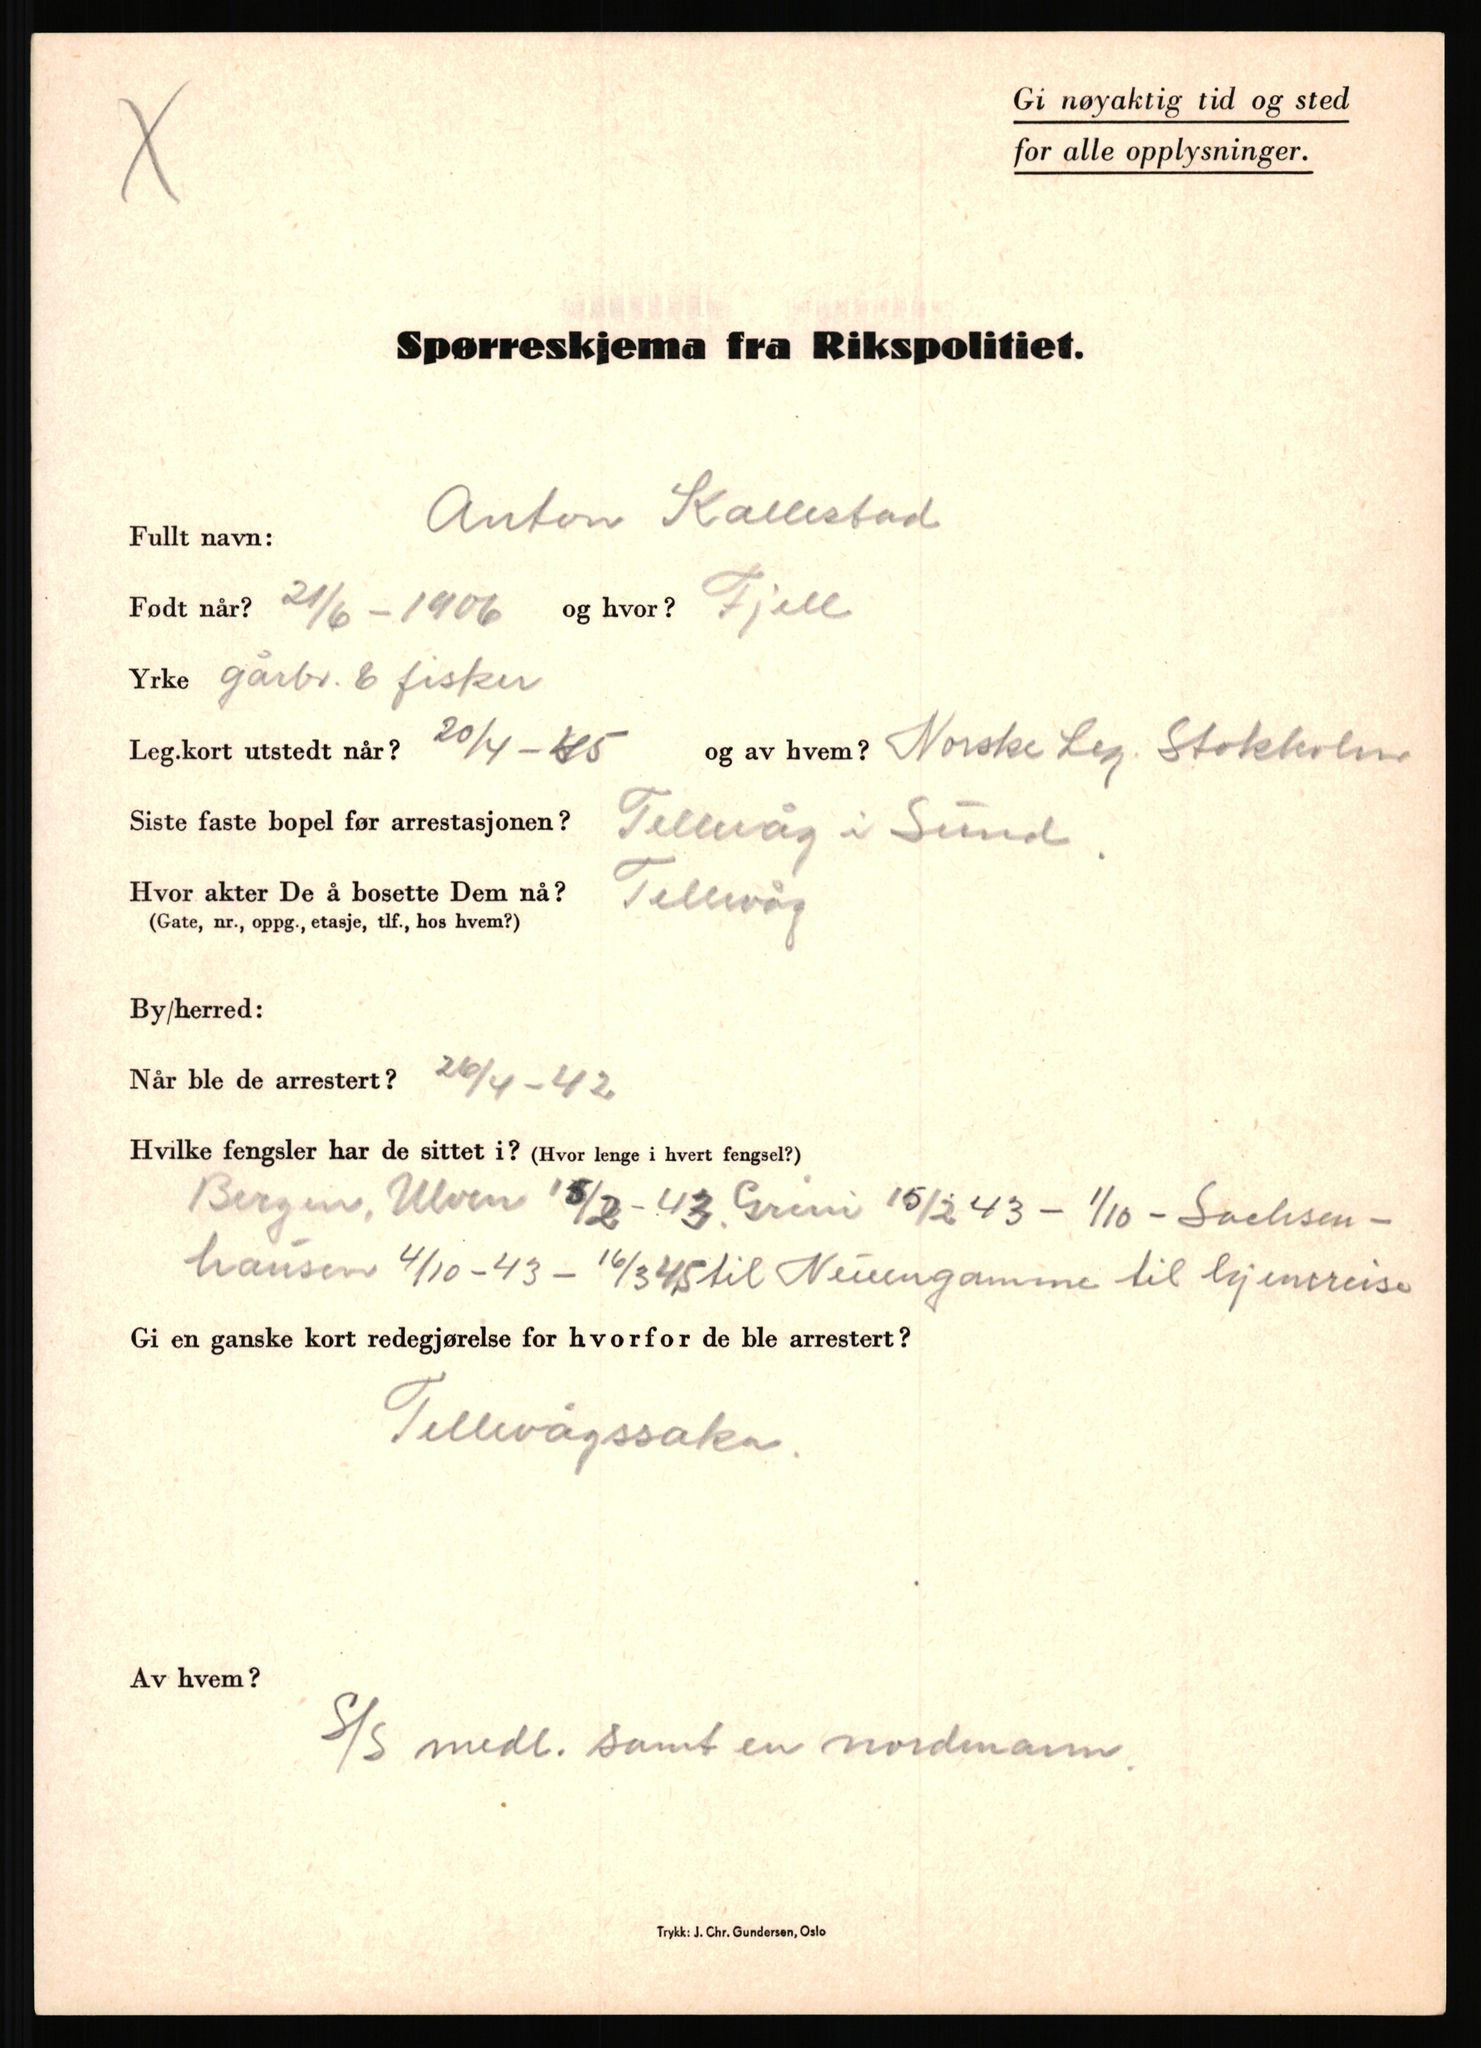 X
Gi nøyaktig tid og sted
for alle opplysninger.
Spørreskjema fra Rikspolitiet.
Fullt navn: Anton Kallestad
Født når? 21/6 – 1906 og hvor? Fjell
Yrke gårbr. & fisker
Leg.kort utstedt når? 20/4 – 45 og av hvem? Norske Leg. Stokholm
Siste faste bopel før arrestasjonen? Tellevåg i Sund.
Hvor akter De å bosette Dem nå? Tellevåg
(Gate, nr., oppg., etasje, tlf., hos hvem?)
By/herred:
Når ble de arrestert? 26/4 – 42
Hvilke fengsler har de sittet i? (Hvor lenge i hvert fengsel?)
Bergen, Ulven 15/2 – 43. Grini 15/2 43 – 1/10 – Sachsen –
hausen 4/10 – 43 – 16/3 45 til Neuengamme til hjemreise
Gi en ganske kort redegjørelse for hvorfor de ble arrestert?
Tellevågssaka.
Av hvem?
S/S medl. samt en nordmann.
Trykk: J. Chr. Gundersen, Oslo